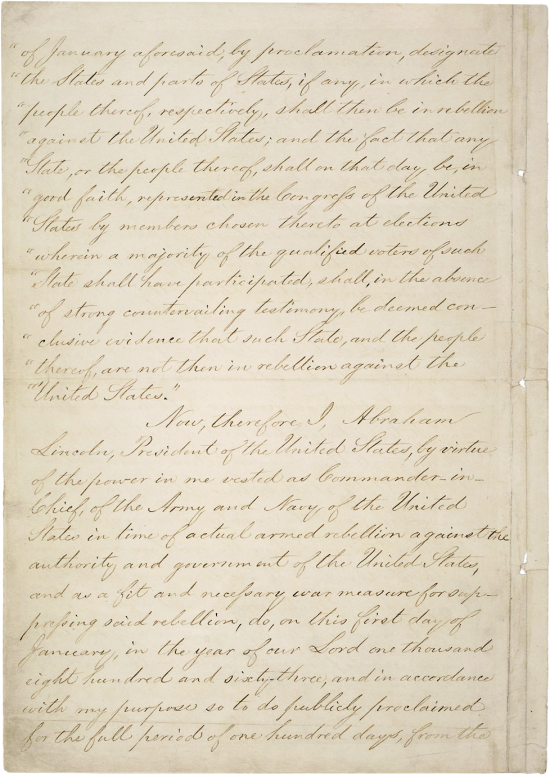 "of January aforesaid, by proclamation, designate
"the States and parts of States, if any, in which the
"people thereof, respectively, shall then be in rebellion
"against the United States; and the fact that any
"State, or the people thereof, shall on that day be, in
"good faith, represented in the Congress of the United
"States by members chosen thereto at elections
"wherein a majority of the qualified voters of such
"State shall have participated, shall, in the absence
"of strong countervailing testimony, be deemed con-
"clusive evidence that such State, and the people
"thereof, are not then in rebellion against the
"United States."
Now, therefore I, Abraham
Lincoln, President of the United States, by virtue
of the power in me vested as Commander-in-
Chief, of the Army and Navy of the United
States in time of actual armed rebellion against the
authority and government of the United States,
and as a fit and necessary war measure for sup-
pressing said rebellion, do, on this first day of
January, in the year of our Lord one thousand
eight hundred and sixty-three, and in accordance
with my purpose so to do publicly proclaimed
for the full period of one hundred days, from the